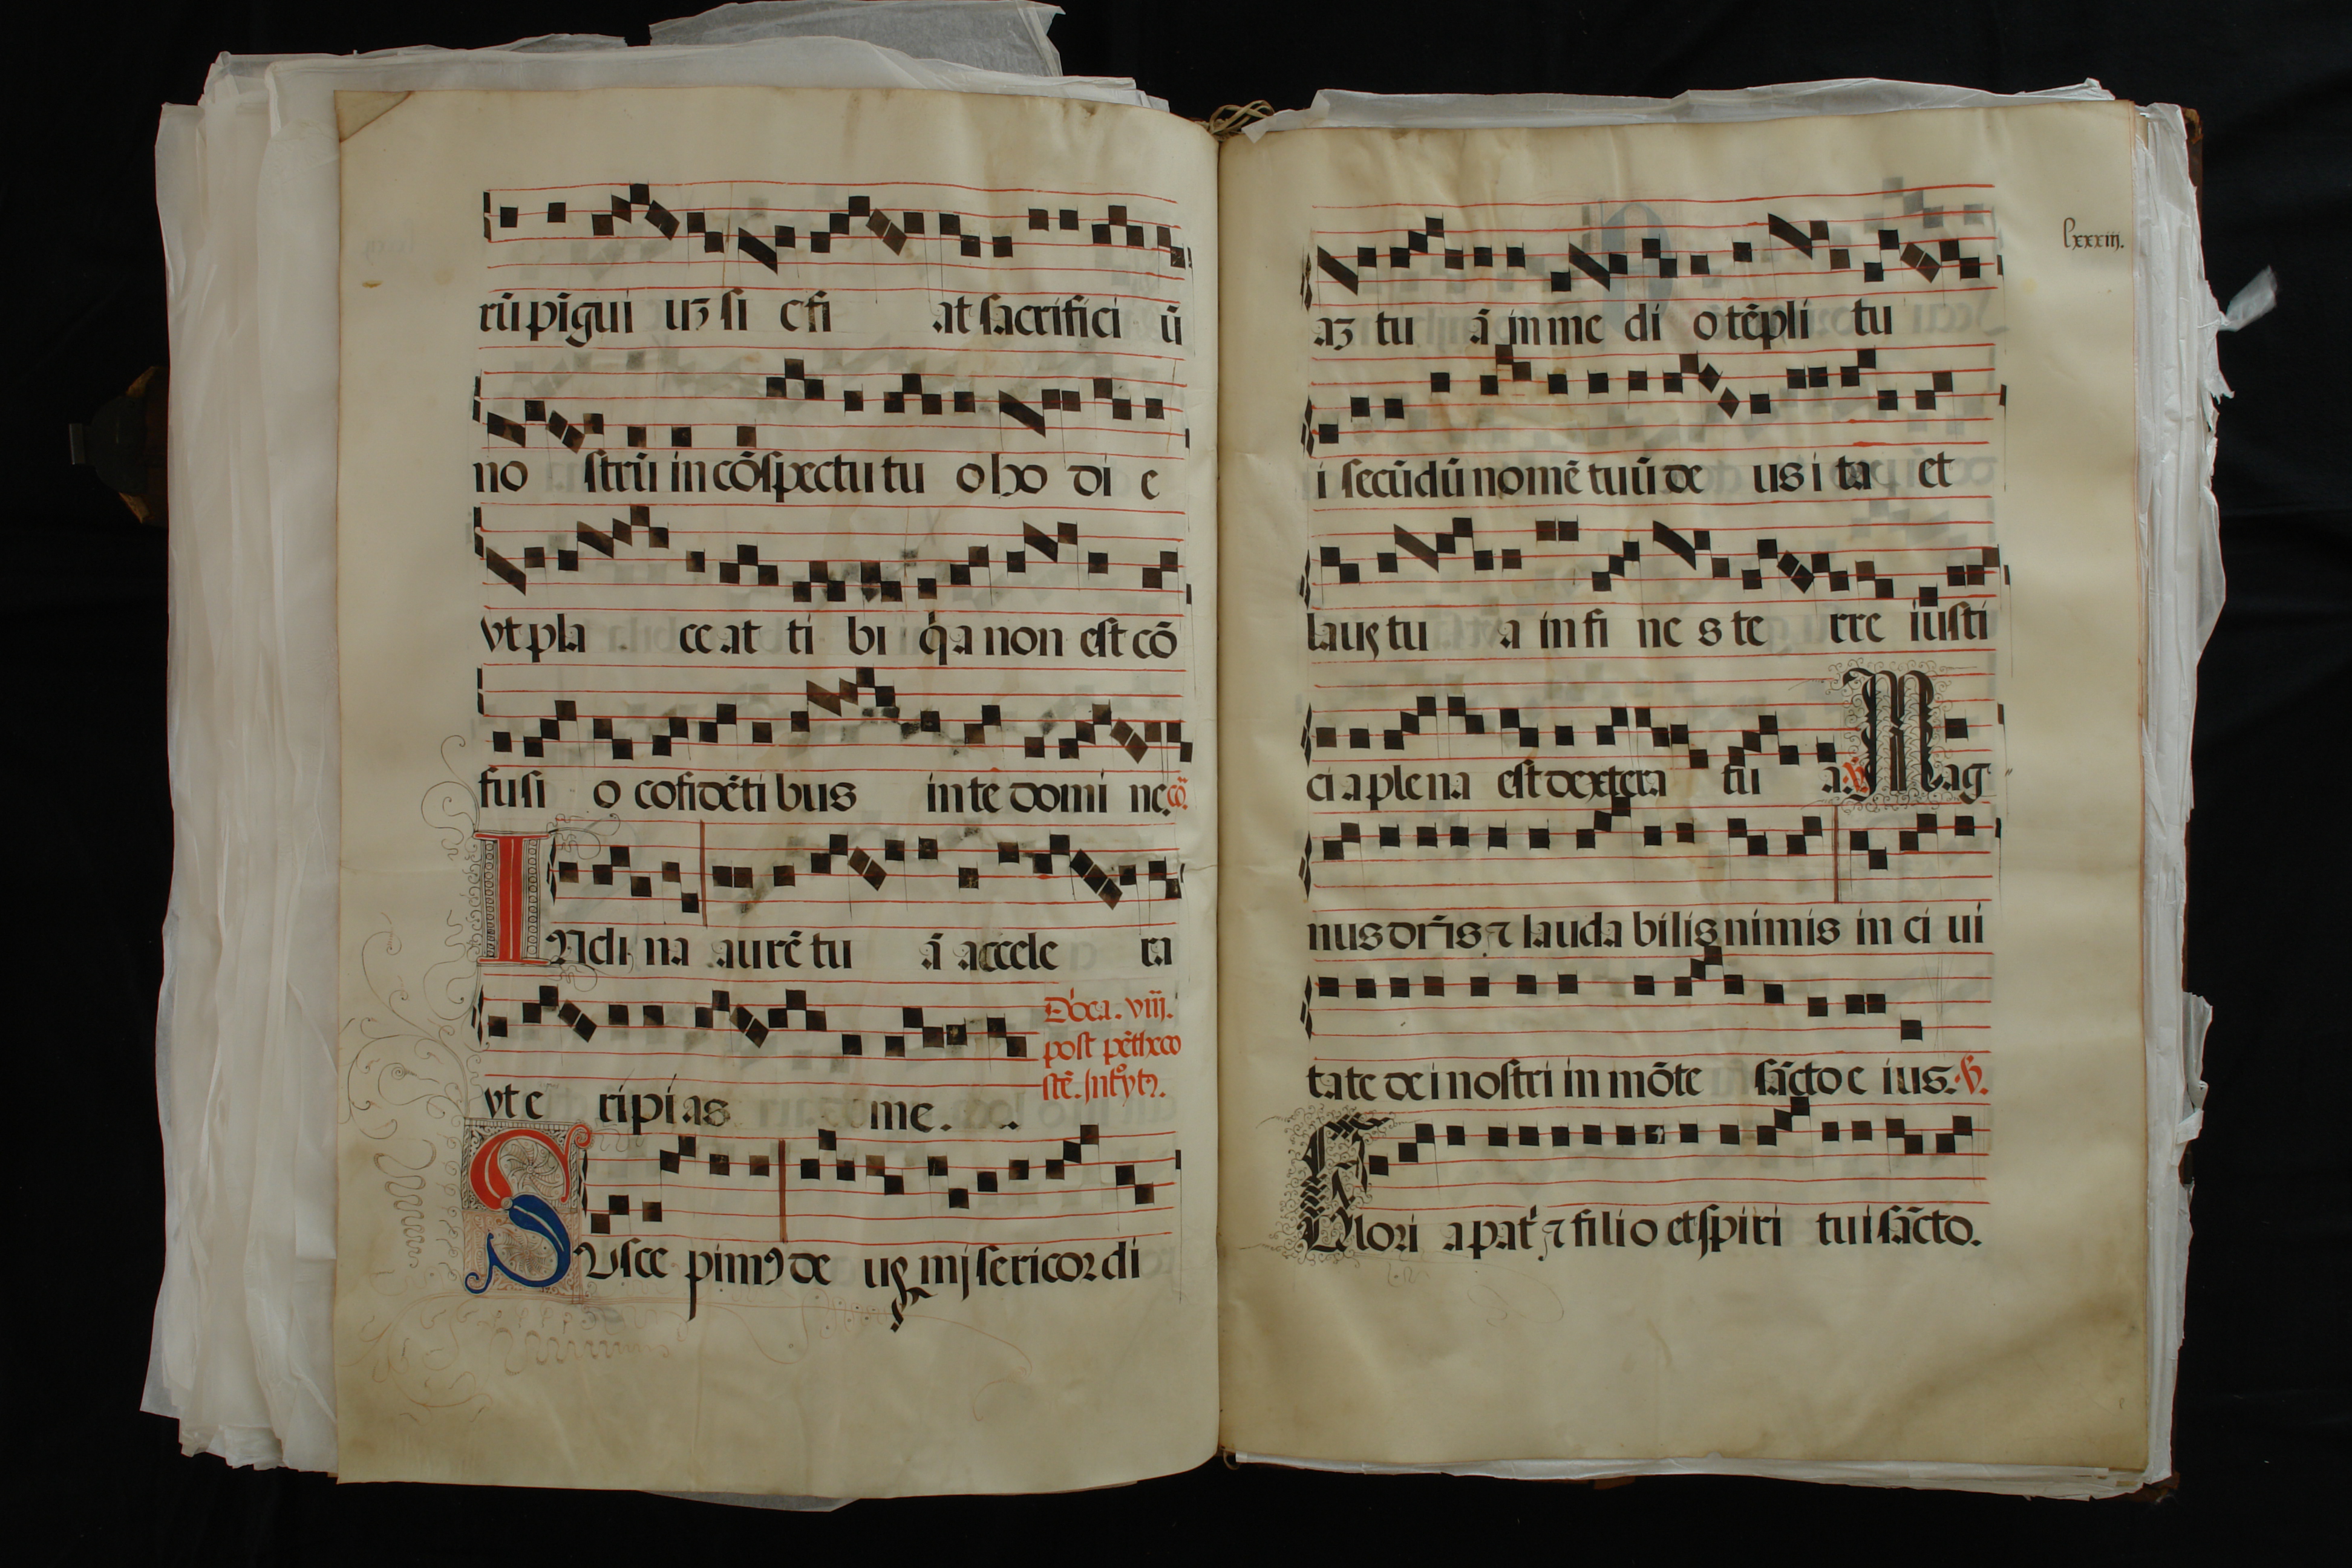 rū pīgui uʒ si c fi at sacrifici ū
no strū in cōspectu tu o ho di e
vt pla ce at ti bi q̇a non est cō
fusi o cōfidēti bus in te domi ne. cō.
INcli na aurē tu ā accele ra
vt e ripi as me.
Dōca. viij.
post pētheco
stē. Introytꝰ.
SUsce pimꝰ de us misericordi
lxxxiij.
aʒ tu ā in me di o tēpli tu
i secūdū nomē tuū de us i ta et
laus tu a in fi nes te rre iusti
ci a plena est dextera tu a. V̄. Mag
nus dn̄s ⁊ lauda bilis nimis in ci ui
tate dei nostri in mōte sācto e ius. V̄.
Glori a pat' ⁊ filio et spiri tui sācto.